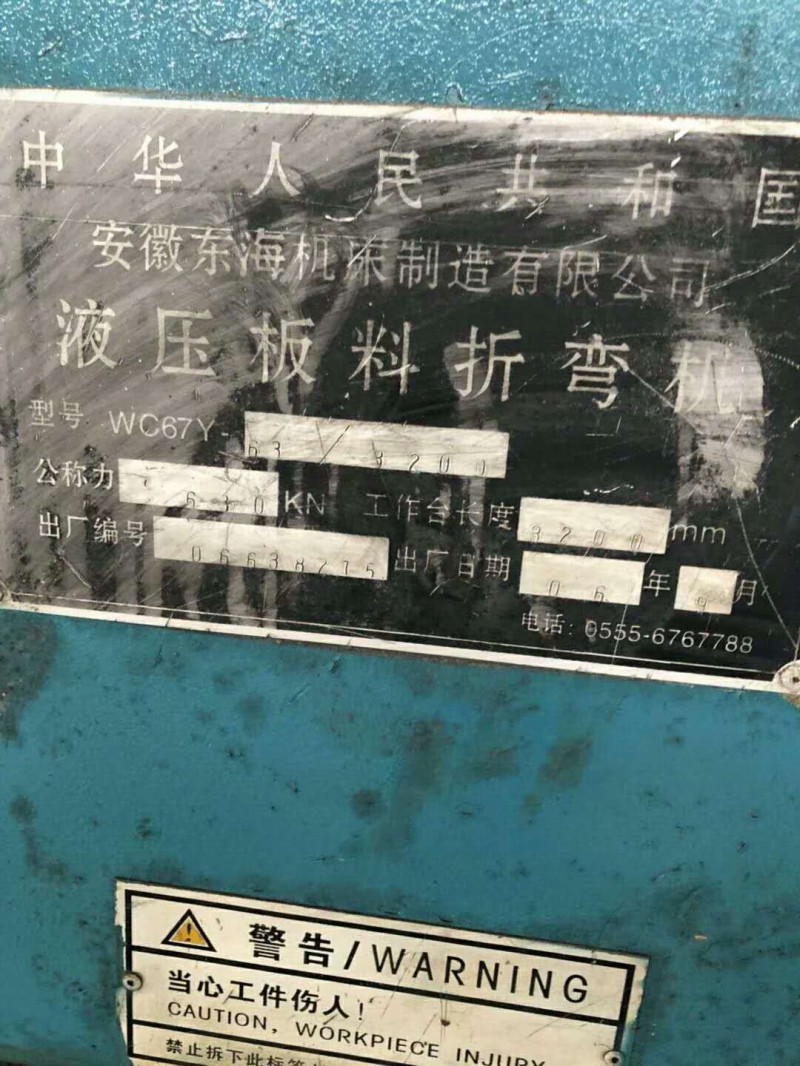 中华人民共和国
安徽东海机床制造有限公司
液压板料折弯机
型号 WC67Y-63/3200
公称力 630KN 工作台长度 3200mm
出厂编号 06638215 出厂日期 06年9月
电话: 0555-6767788
警告/WARNING
当心工件伤人!
CAUTION, WORKPIECE INJURY
禁止拆下此标签